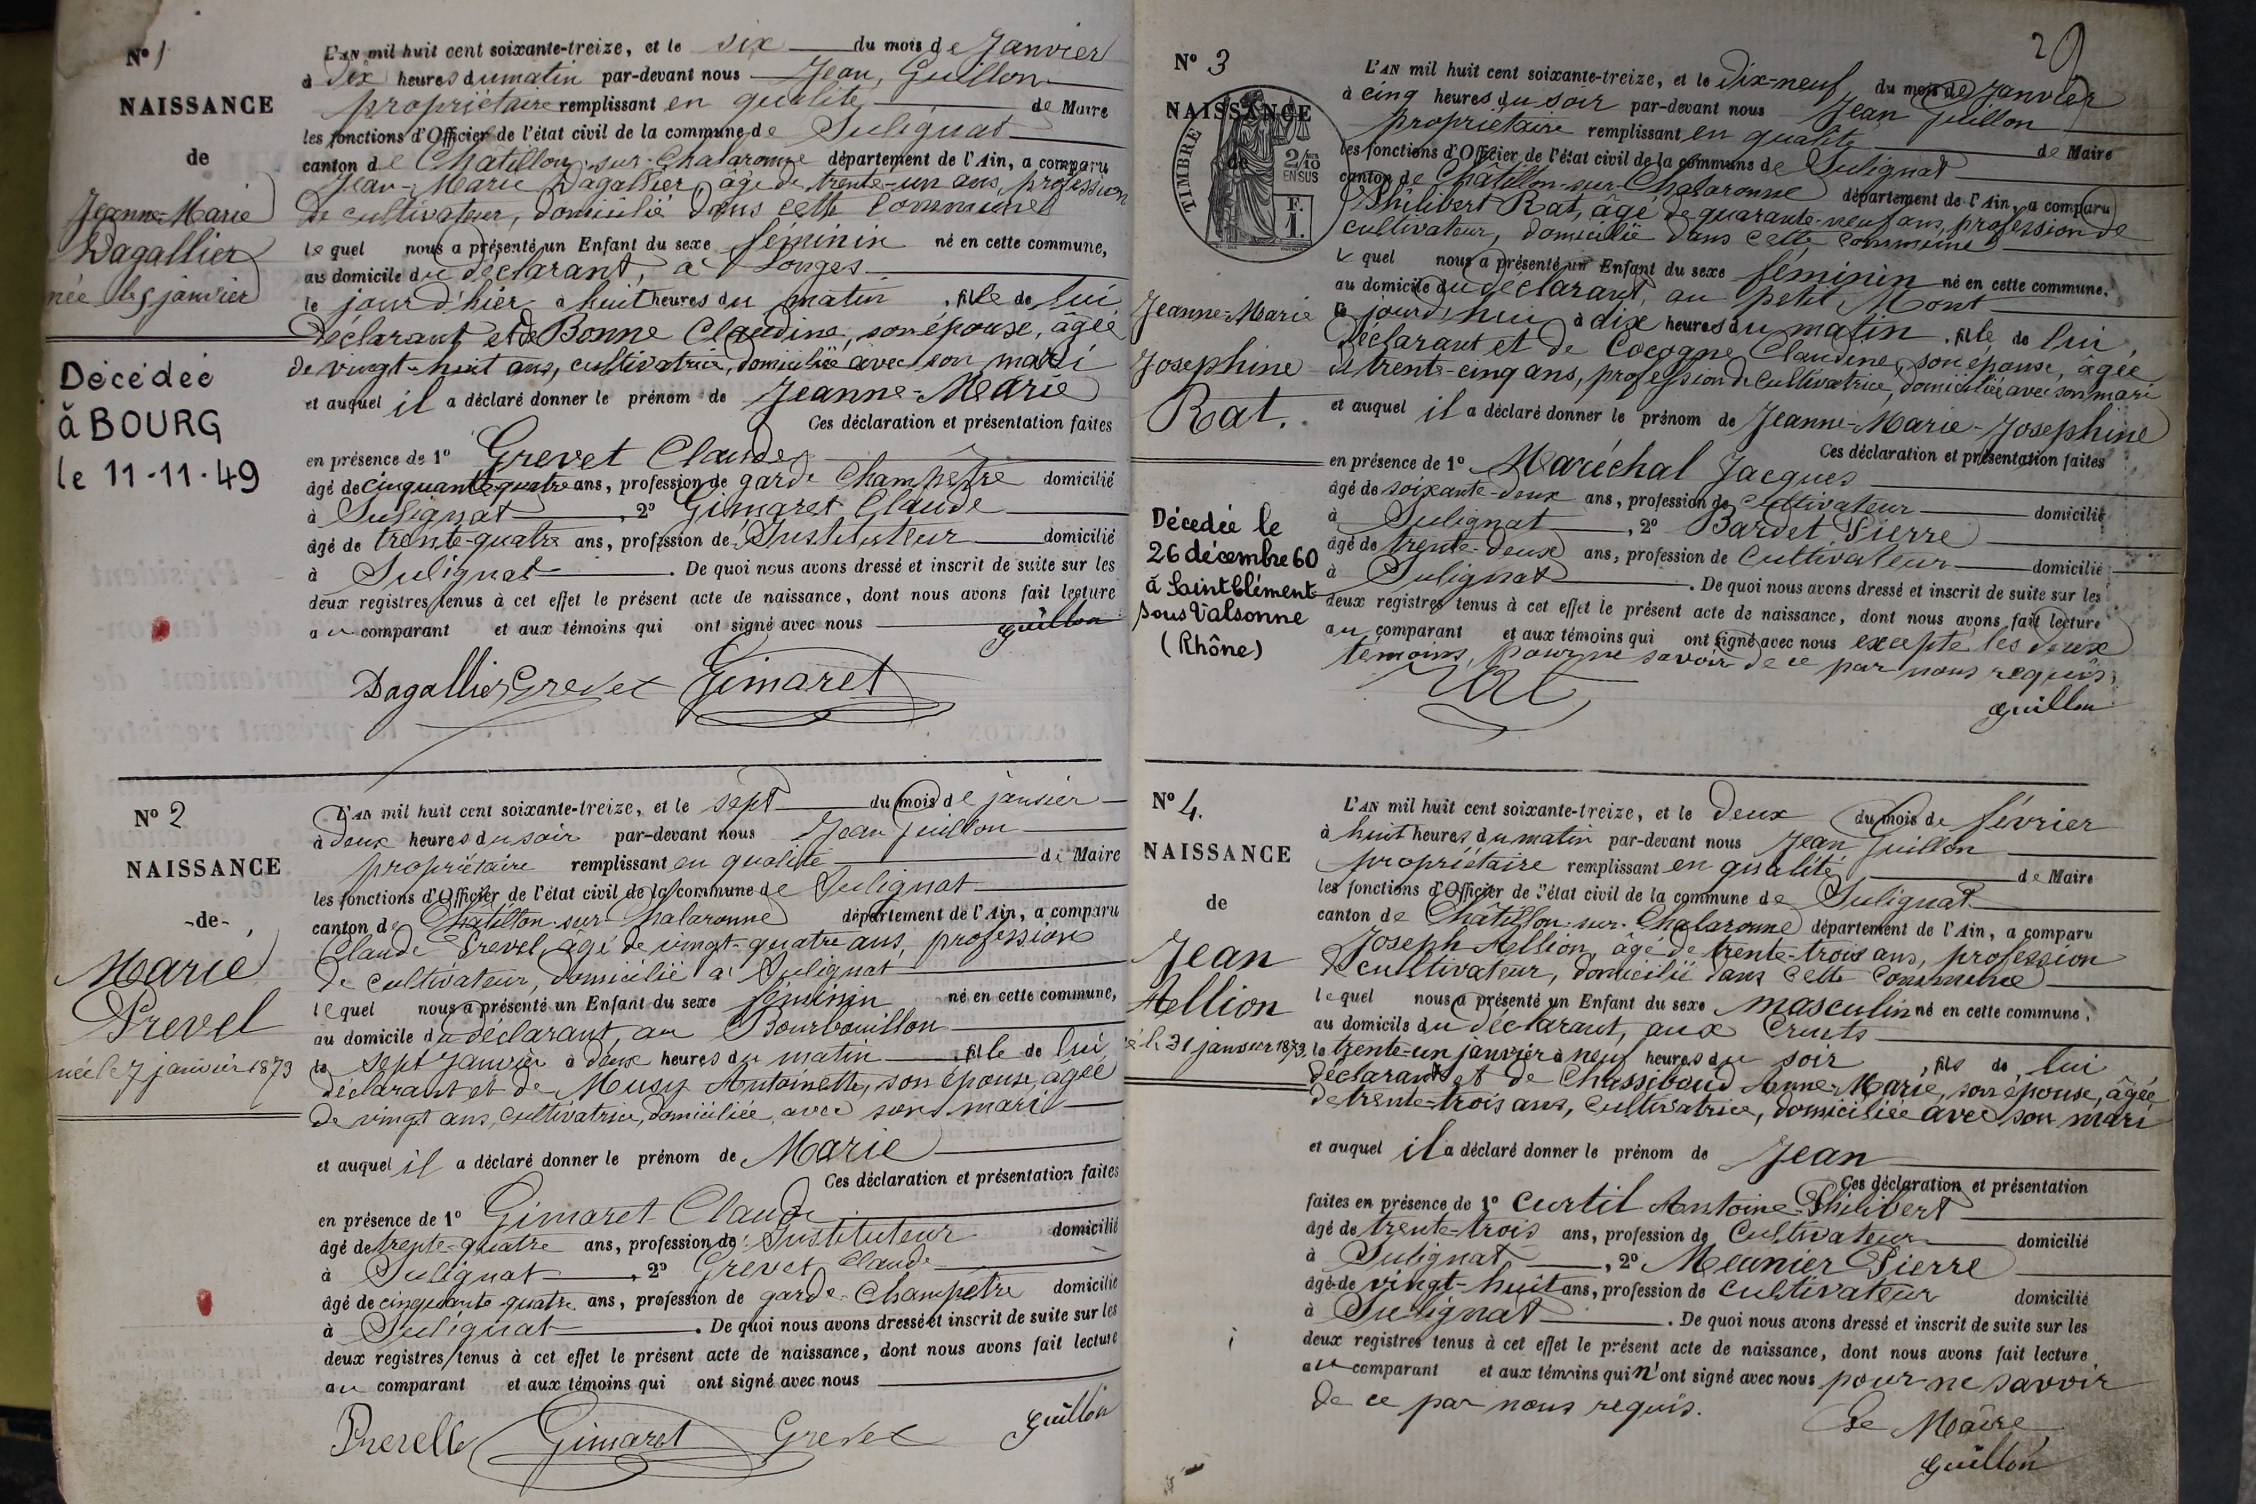 N° 1
NAISSANCE
de
Jeanne-Marie
Dagallier
née le 5 janvier
Décédée
à BOURG
le 11-11-49
L'AN mil huit cent soixante-treize, et le six du mois de Janvier
à dix heures du matin par-devant nous Jean, Guillon
propriétaire remplissant en qualité de Maire
les fonctions d'Officier de l'état civil de la commune de Sulignat
canton de Châtillon-sur-Chalaronne département de l'Ain, a comparu
Jean-Marie Dagallier, âgé de trente-un ans, profession
de cultivateur, domicilié dans cette commune
lequel nous a présenté un Enfant du sexe féminin né en cette commune,
au domicile du déclarant, à Longes
le jour d'hier à huit heures du matin, fille de lui
déclarant et de Bonne Claudine, son épouse, âgée
de vingt-huit ans, cultivatrice, domiciliée avec son mari
et auquel il a déclaré donner le prénom de Jeanne-Marie
Ces déclaration et présentation faites
en présence de 1° Grevet Claude
âgé de cinquante-quatre ans, profession de garde champêtre domicilié
à Sulignat, 2° Gimaret Claude
âgé de trente-quatre ans, profession de Instituteur domicilié
à Sulignat. De quoi nous avons dressé et inscrit de suite sur les
deux registres tenus à cet effet le présent acte de naissance, dont nous avons fait lecture
au comparant et aux témoins qui ont signé avec nous
Guillon
Dagallier Grevet Gimaret
N° 2
NAISSANCE
-de-
Marie
Prevel
née le 7 janvier 1873
L'AN mil huit cent soixante-treize, et le sept du mois de janvier
à deux heures du soir par-devant nous Jean Guillon
propriétaire remplissant en qualité de Maire
les fonctions d'Officier de l'état civil de la commune de Sulignat
canton de Châtillon-sur-Chalaronne département de l'Ain, a comparu
Claude Prevel, âgé de vingt-quatre ans, profession
de cultivateur, domicilié à Sulignat
lequel nous a présenté un Enfant du sexe féminin né en cette commune,
au domicile du déclarant, au Bourbouillon
le sept janvier à deux heures du matin, fille de lui
déclarant et de Musy Antoinette, son épouse, âgée
de vingt ans, cultivatrice, domiciliée avec son mari
et auquel il a déclaré donner le prénom de Marie
Ces déclaration et présentation faites
en présence de 1° Gimaret Claude
âgé de trente-quatre ans, profession de Instituteur domicilié
à Sulignat, 2° Grevet Claude
âgé de cinquante-quatre ans, profession de garde-champêtre domicilié
à Sulignat. De quoi nous avons dressé et inscrit de suite sur les
deux registres tenus à cet effet le présent acte de naissance, dont nous avons fait lecture
au comparant et aux témoins qui ont signé avec nous
Guillon
Prevelle Gimaret Grevet
29
N° 3
NAISSANCE
de
TIMBRE
2/10
EN SUS
F.
1.
Jeanne-Marie
Josephine
Rat.
Décedée le
26 décembre 60
à Saint Clément
sous Valsonne
(Rhône)
L'AN mil huit cent soixante-treize, et le dix-neuf du mois de Janvier
à cinq heures du soir par-devant nous Jean Guillon
propriétaire remplissant en qualité de Maire
les fonctions d'Officier de l'état civil de la commune de Sulignat
canton de Châtillon-sur-Chalaronne département de l'Ain, a comparu
Philibert Rat, âgé de quarante-neuf ans, profession de
cultivateur, domicilié dans cette commune
lequel nous a présenté un Enfant du sexe féminin né en cette commune,
au domicile du déclarant, au petit Mont
le jourd'hui à dix heures du matin, fille de lui,
déclarant et de Cocogne Claudine, son épouse, âgée
de trente-cinq ans, profession de cultivatrice, domiciliée avec son mari
et auquel il a déclaré donner le prénom de Jeanne-Marie-Josephine
Ces déclaration et présentation faites
en présence de 1° Maréchal Jacques
âgé de soixante-deux ans, profession de cultivateur domicilié
à Sulignat, 2° Bardet Pierre
âgé de trente-deux ans, profession de cultivateur domicilié
à Sulignat. De quoi nous avons dressé et inscrit de suite sur les
deux registres tenus à cet effet le présent acte de naissance, dont nous avons fait lecture
au comparant et aux témoins qui ont signé avec nous excepté les deux
témoins, pour ne savoir de ce par nous requis.
Rat
Guillon
N° 4.
NAISSANCE
de
Jean
Aellion
né le 31 janvier 1873
L'AN mil huit cent soixante-treize, et le deux du mois de février
à huit heures du matin par-devant nous Jean Guillon
propriétaire remplissant en qualité de Maire
les fonctions d'Officier de l'état civil de la commune de Sulignat
canton de Châtillon-sur-Chalaronne département de l'Ain, a comparu
Joseph Aellion, âgé de trente-trois ans, profession
de cultivateur, domicilié dans cette commune
lequel nous a présenté un Enfant du sexe masculin né en cette commune,
au domicile du déclarant, aux Cruts
le trente-un janvier à neuf heures du soir, fils de lui
déclarant et de Chassiboud Anne-Marie, son épouse, âgée
de trente-trois ans, cultivatrice, domiciliée avec son mari
et auquel il a déclaré donner le prénom de Jean
Ces déclaration et présentation
faites en présence de 1° Curtil Antoine-Philibert
âgé de trente-trois ans, profession de cultivateur domicilié
à Sulignat, 2° Meunier Pierre
âgé de vingt-huit ans, profession de cultivateur domicilié
à Sulignat. De quoi nous avons dressé et inscrit de suite sur les
deux registres tenus à cet effet le présent acte de naissance, dont nous avons fait lecture
au comparant et aux témoins qui n'ont signé avec nous pour ne savoir
de ce par nous requis.
Le Maire
Guillon